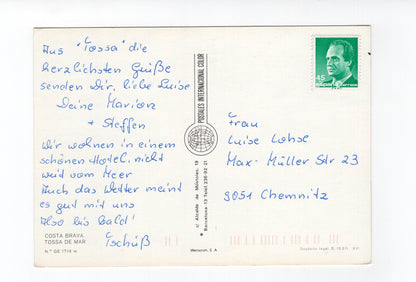 Aus "Tossa" die
herzlichsten Grüße
senden Dir, liebe Luise
Deine Marion
+ Steffen
Wir wohnen in einem
schönen Hotel, nicht
weit vom Meer
Auch das Wetter meint
es gut mit uns
Also bis bald!
Tschüß
COSTA BRAVA
TOSSA DE MAR
N.º GE 1714
POSTALES INTERNACIONAL COLOR
c/ Alcalde de Móstoles, 19
Barcelona 13 Tel. 236-92-21
Mencrom, S. A.
45
Frau
Luise Lohse
Max-Müller Str 23
9051 Chemnitz
Depósito legal B.